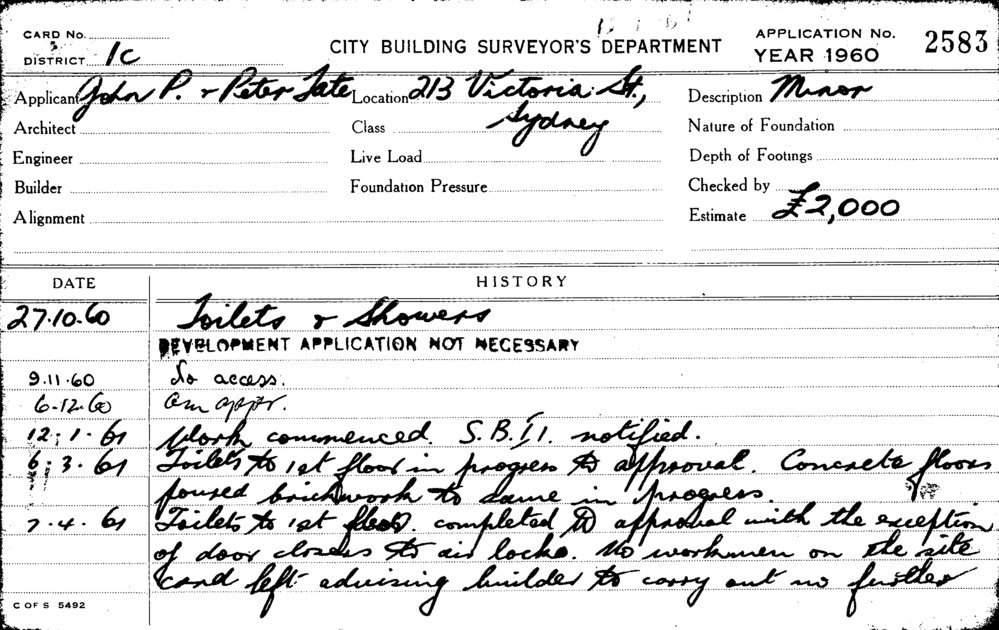 CARD No.
DISTRICT 1C
CITY BUILDING SURVEYOR'S DEPARTMENT
APPLICATION No. 2583
YEAR 1960
Applicant John P. & Peter Tate Location 213 Victoria St., Description Minor
Sydney
Architect Class Nature of Foundation
Engineer Live Load Depth of Footings
Builder Foundation Pressure Checked by
Alignment Estimate £2,000
DATE HISTORY
27.10.60 Toilets & Showers
DEVELOPMENT APPLICATION NOT NECESSARY
9.11.60 No access.
6.12.60 appr.
12.1.61 Work commenced. S.B.I. notified.
6.3.61 Toilets to 1st floor in progress to approval. Concrete floors
poured brickwork to same in progress.
7.4.61 Toilets to 1st floor completed to approval with the exception
of door closers to air locks. No workmen on the site
Card left advising builder to carry out no further
C OF S 5492